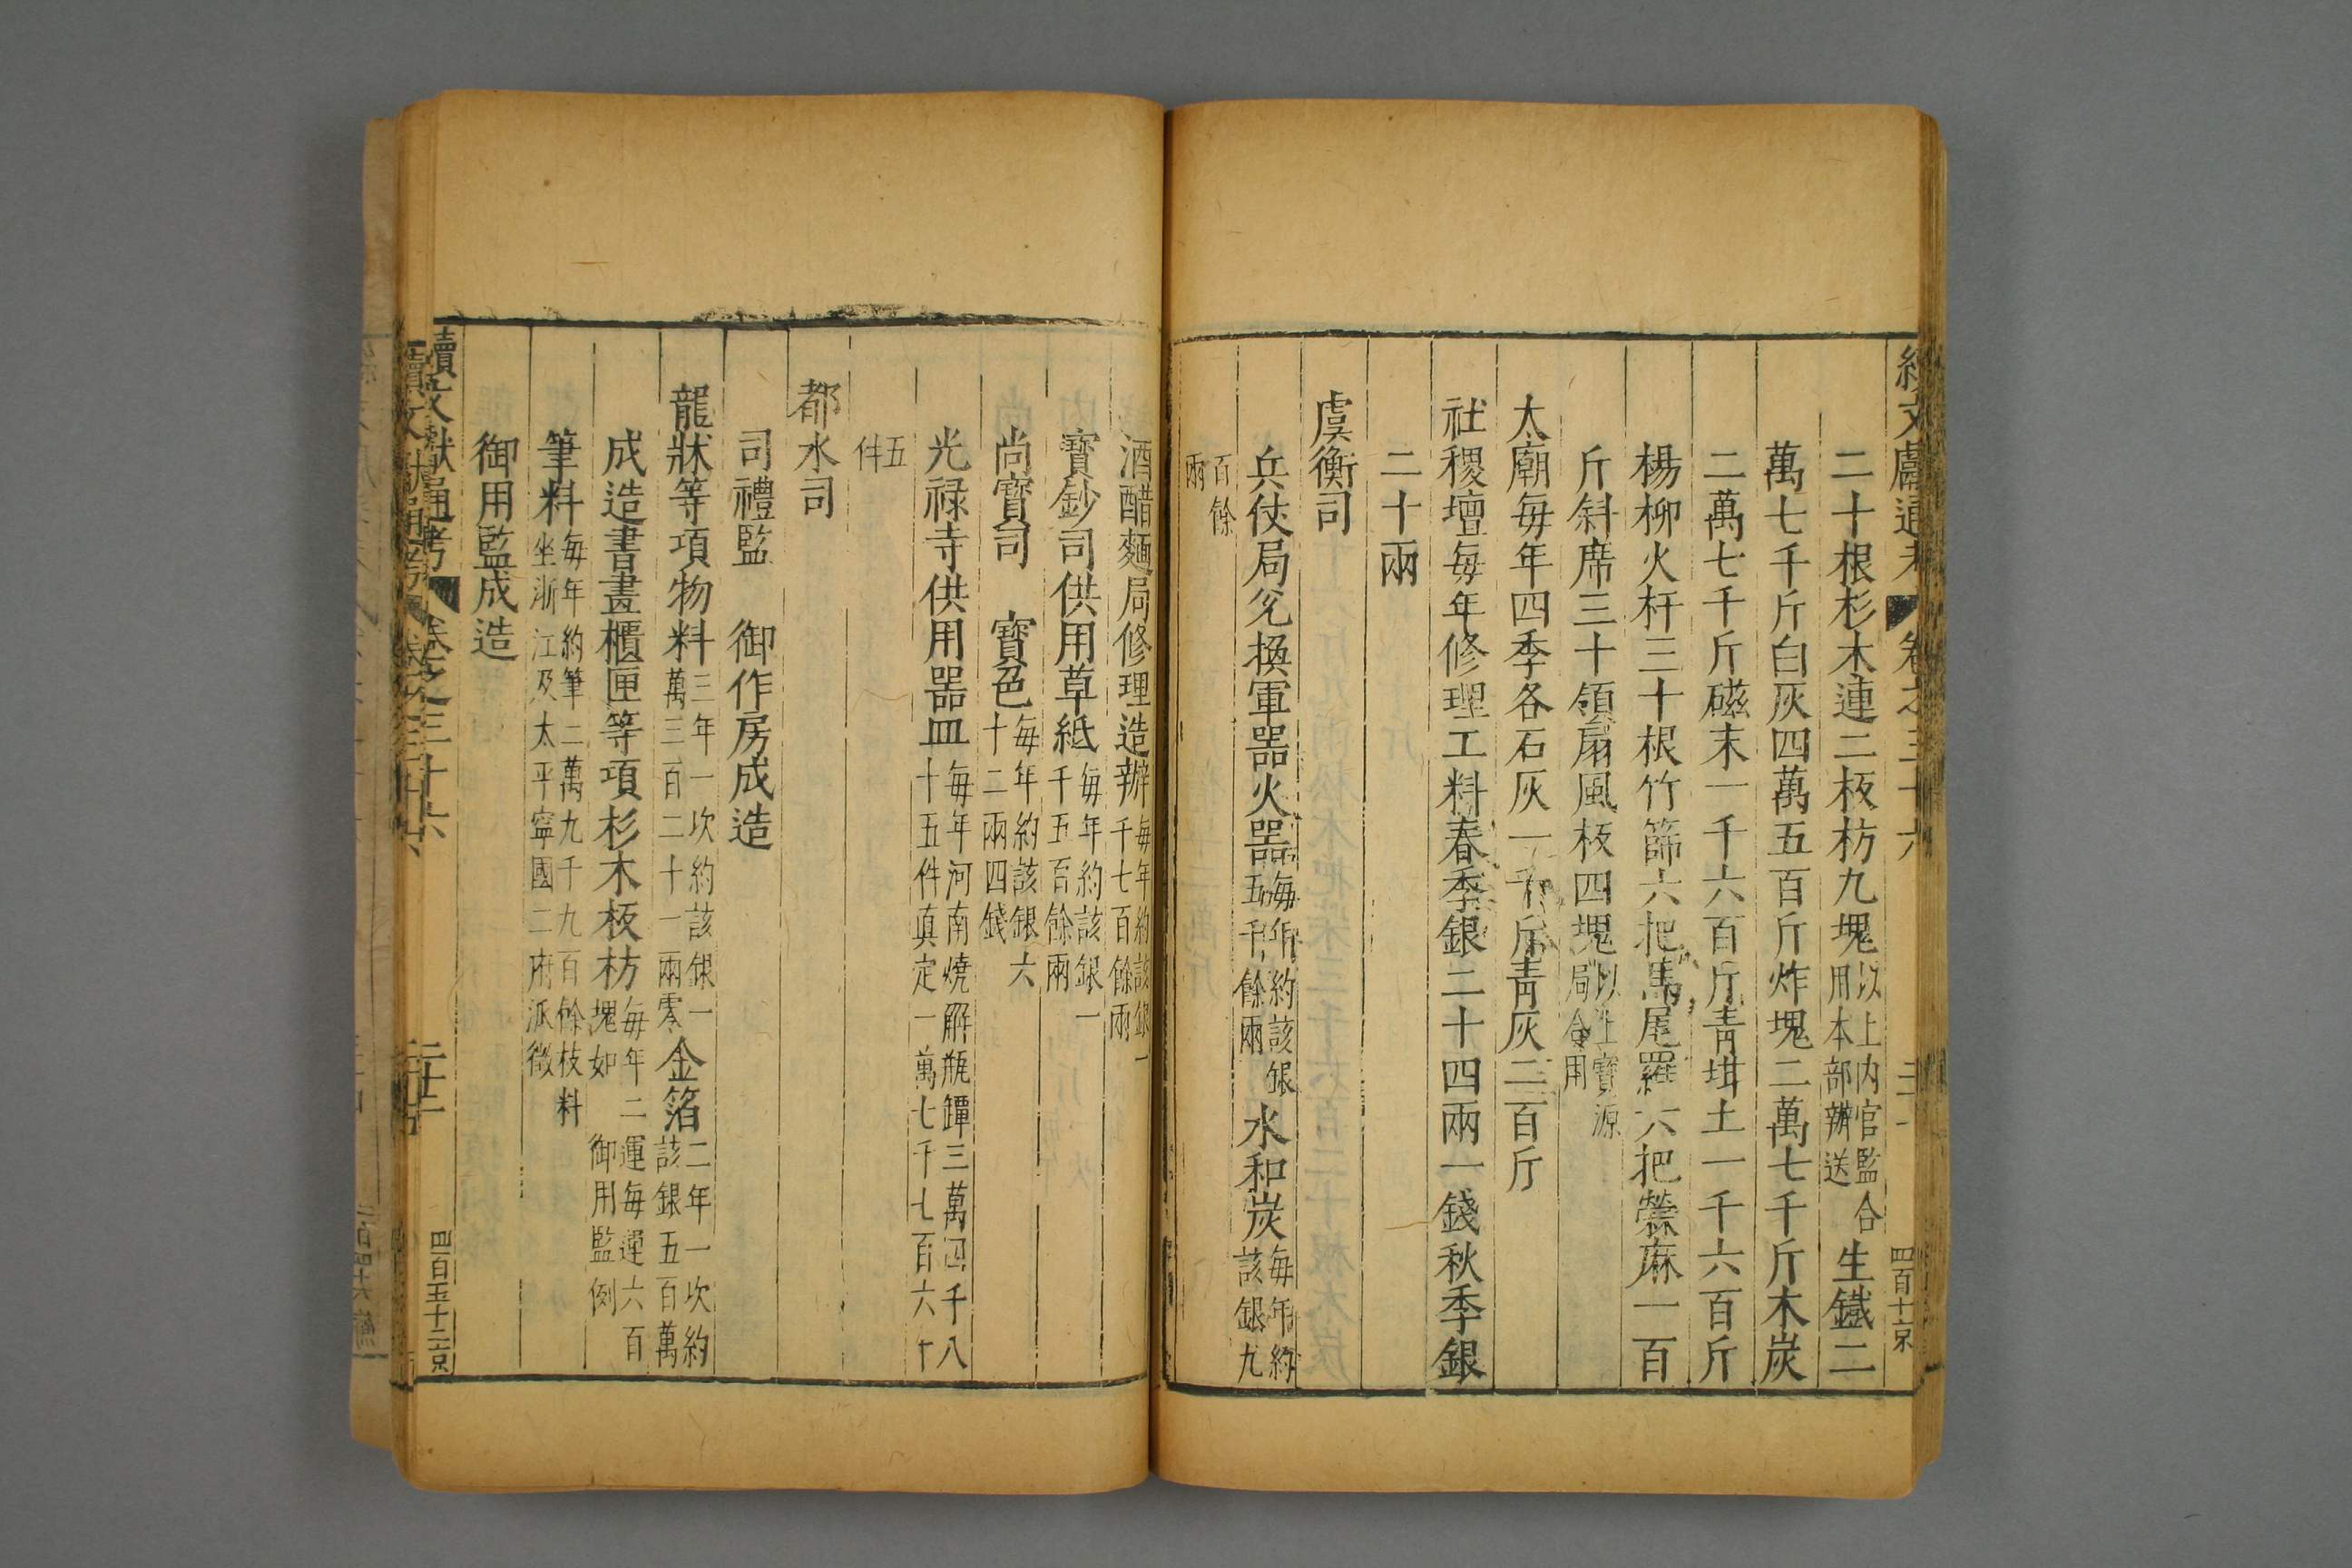 續文獻通考 卷之三十六 四百十六
二十根杉木連二板枋九塊以上內官監合用本部辦送生鐵二
萬七千斤白灰四萬五百斤炸塊二萬七千斤木炭
二萬七千斤磁末一千六百斤青坩土一千六百斤
楊柳火杆三十根竹篩六把馬尾羅六把檾麻一百
斤斜席三十領扇風板四塊以上寶源局合用
太廟每年四季各石灰一千斤青灰二百斤
社稷壇每年修理工料春季銀二十四兩一錢秋季銀
二十兩
虞衡司
兵仗局兊換軍器火器每年約該銀五千餘兩水和炭每年約該銀九
百餘兩
酒醋麵局修理造辦每年約該銀一千七百餘兩
寶鈔司供用草紙每年約該銀一千五百餘兩
尚寶司　寶色每年約該銀六十二兩四錢
光祿寺供用器皿每年河南燒解瓶罈三萬四千八十五件真定一萬七千七百六十
五件
都水司
司禮監　御作房成造
龍牀等項物料三年一次約該銀一萬三百二十一兩零金箔二年一次約該銀五百萬
成造書畫櫃匣等項杉木板枋每年二運每運六百塊如御用監例
筆料每年約筆二萬九千九百餘枝料坐浙江及太平寧國二府派徵
御用監成造
續文獻通考 卷之三十六 四百五十二